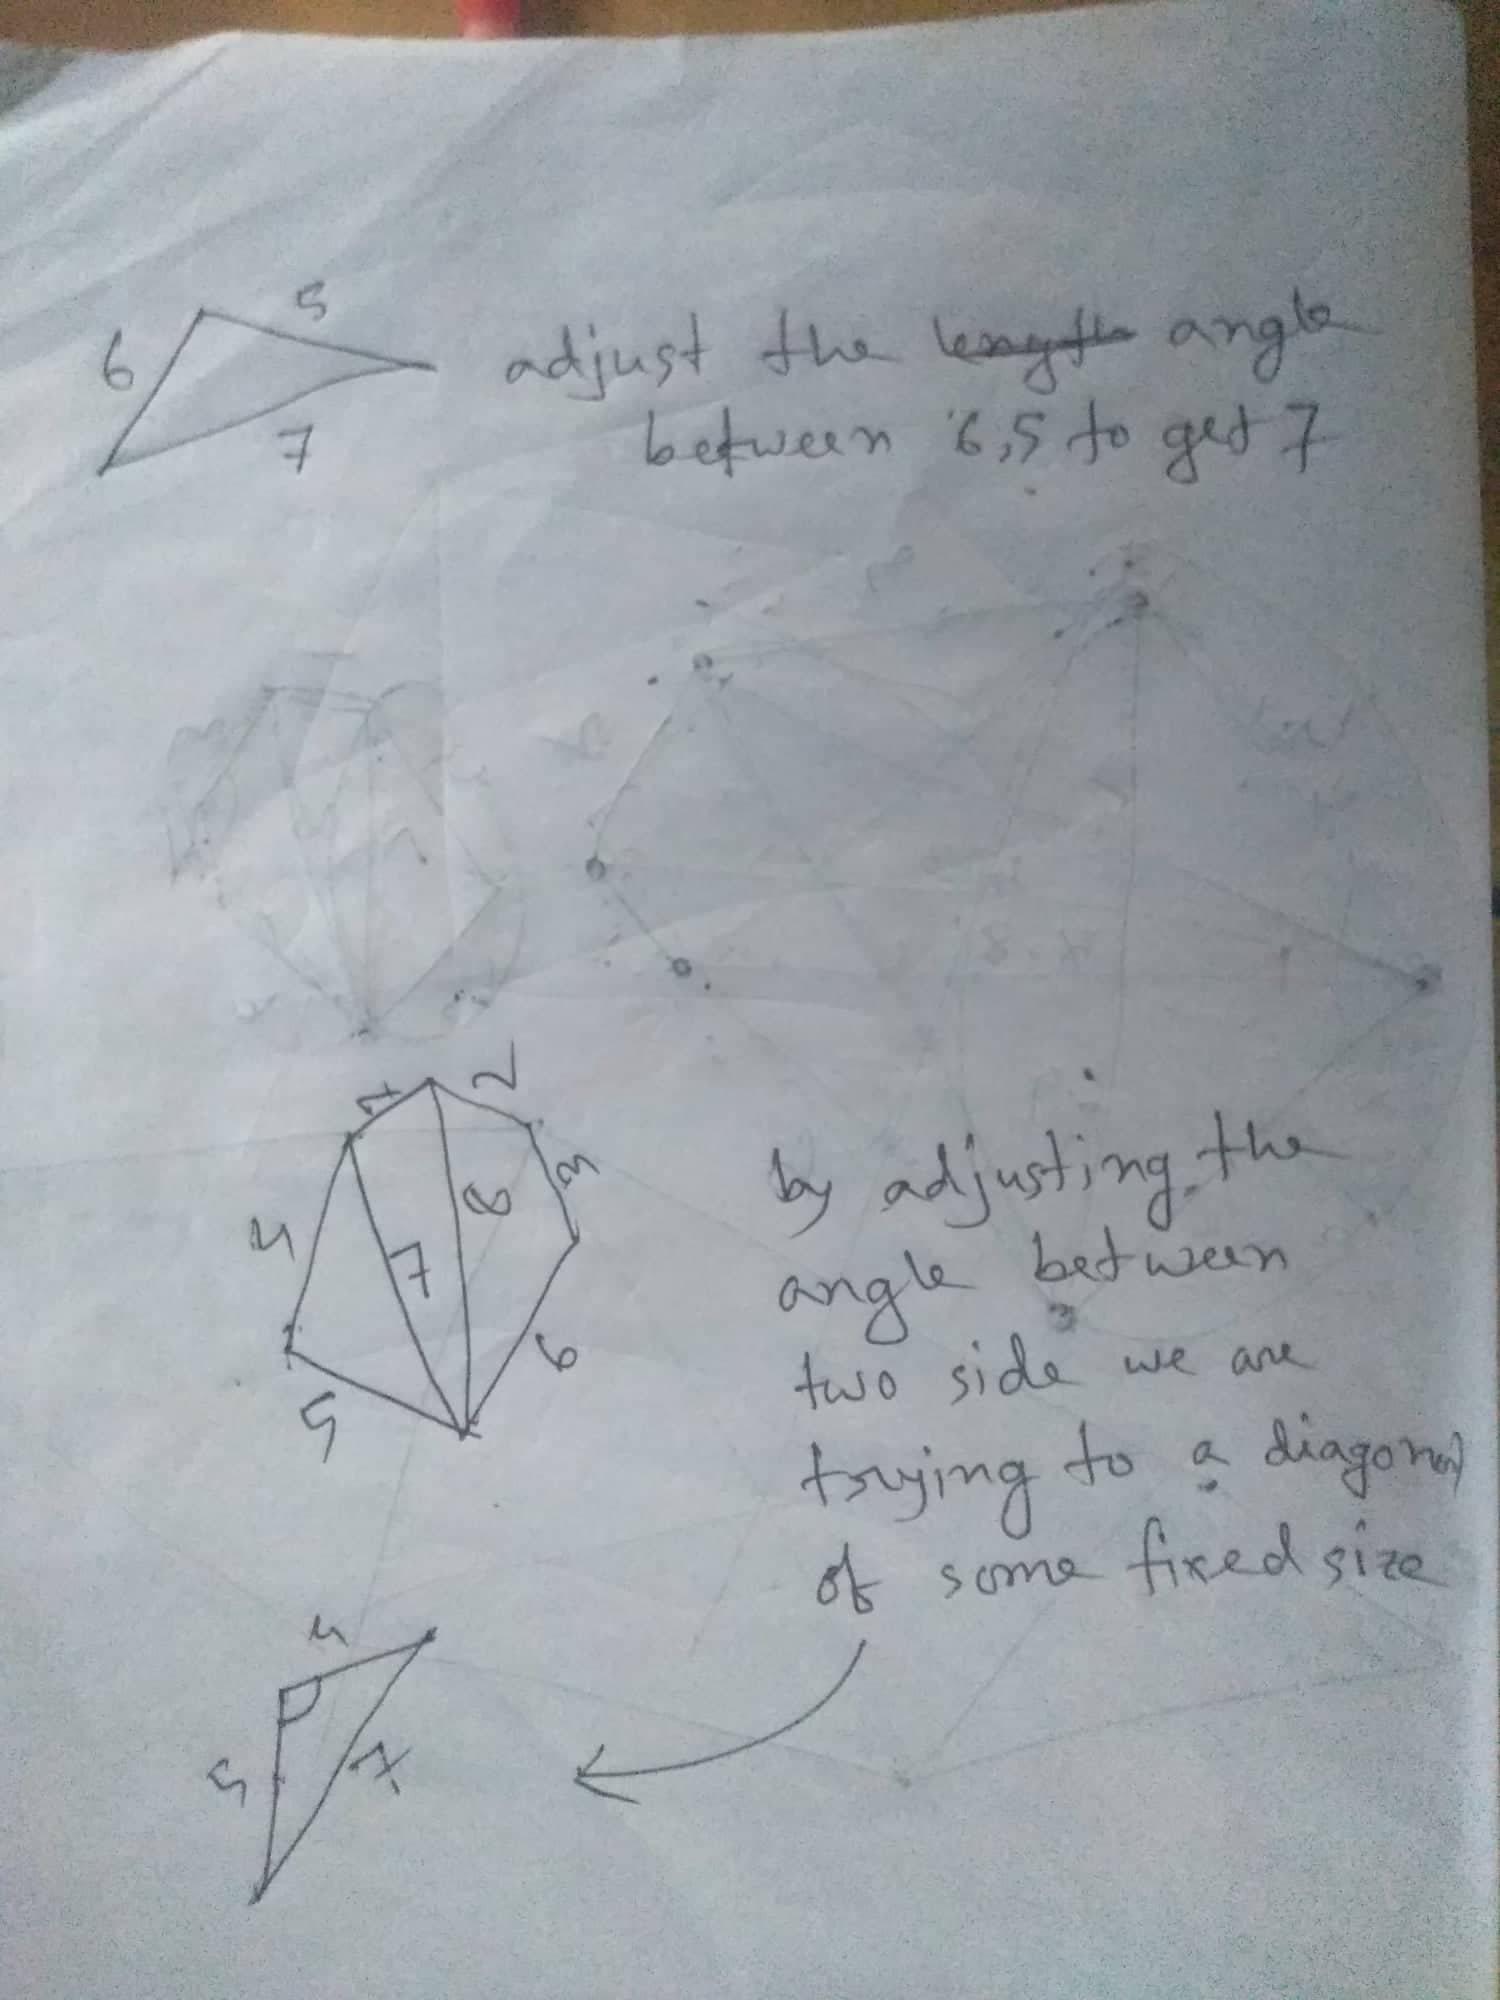 5
6
7
adjust the length angle
between 6,5 to get 7
2
3
8
4
7
6
5
by adjusting the
angle between
two side we are
trying to a diagonal
of some fixed size
4
5
7